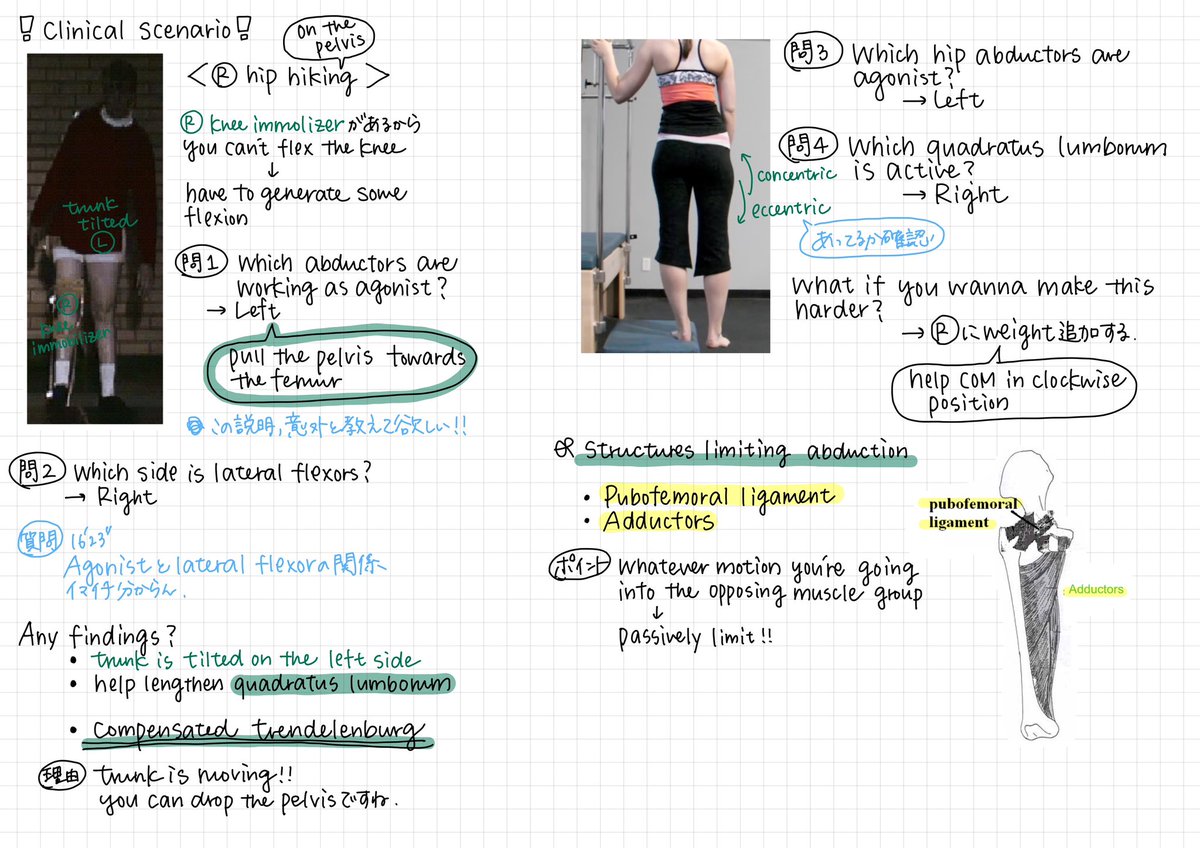 ! Clinical Scenario !
on the
pelvis
< Ⓡ hip hiking >
Ⓡ knee immolizerがあるから
you can't flex the knee
↓
have to generate some
flexion
trunk
tilted
Ⓛ
Ⓡ
knee
immobilizer
問1 Which abductors are
working as agonist?
→ Left
pull the pelvis towards
the femur
この説明,意外と教えて欲しい!!
問2 Which side is lateral flexors?
→ Right
質問 16'23"
Agonistとlateral flexorの関係
イマイチ分からん.
Any findings?
• trunk is tilted on the left side
• help lengthen quadratus lumborum
• compensated trendelenburg
理由 trunk is moving!!
you can drop the pelvisですね.
問3 Which hip abductors are
agonist?
→ Left
問4 Which quadratus lumborum
is active?
→ Right
concentric
eccentric
あってるか確認
What if you wanna make this
harder?
→ Ⓡにweight追加する.
help COM in clockwise
position
Structures limiting abduction
• Pubofemoral ligament
• Adductors
ポイント Whatever motion you're going
into the opposing muscle group
↓
passively limit!!
pubofemoral
ligament
Adductors